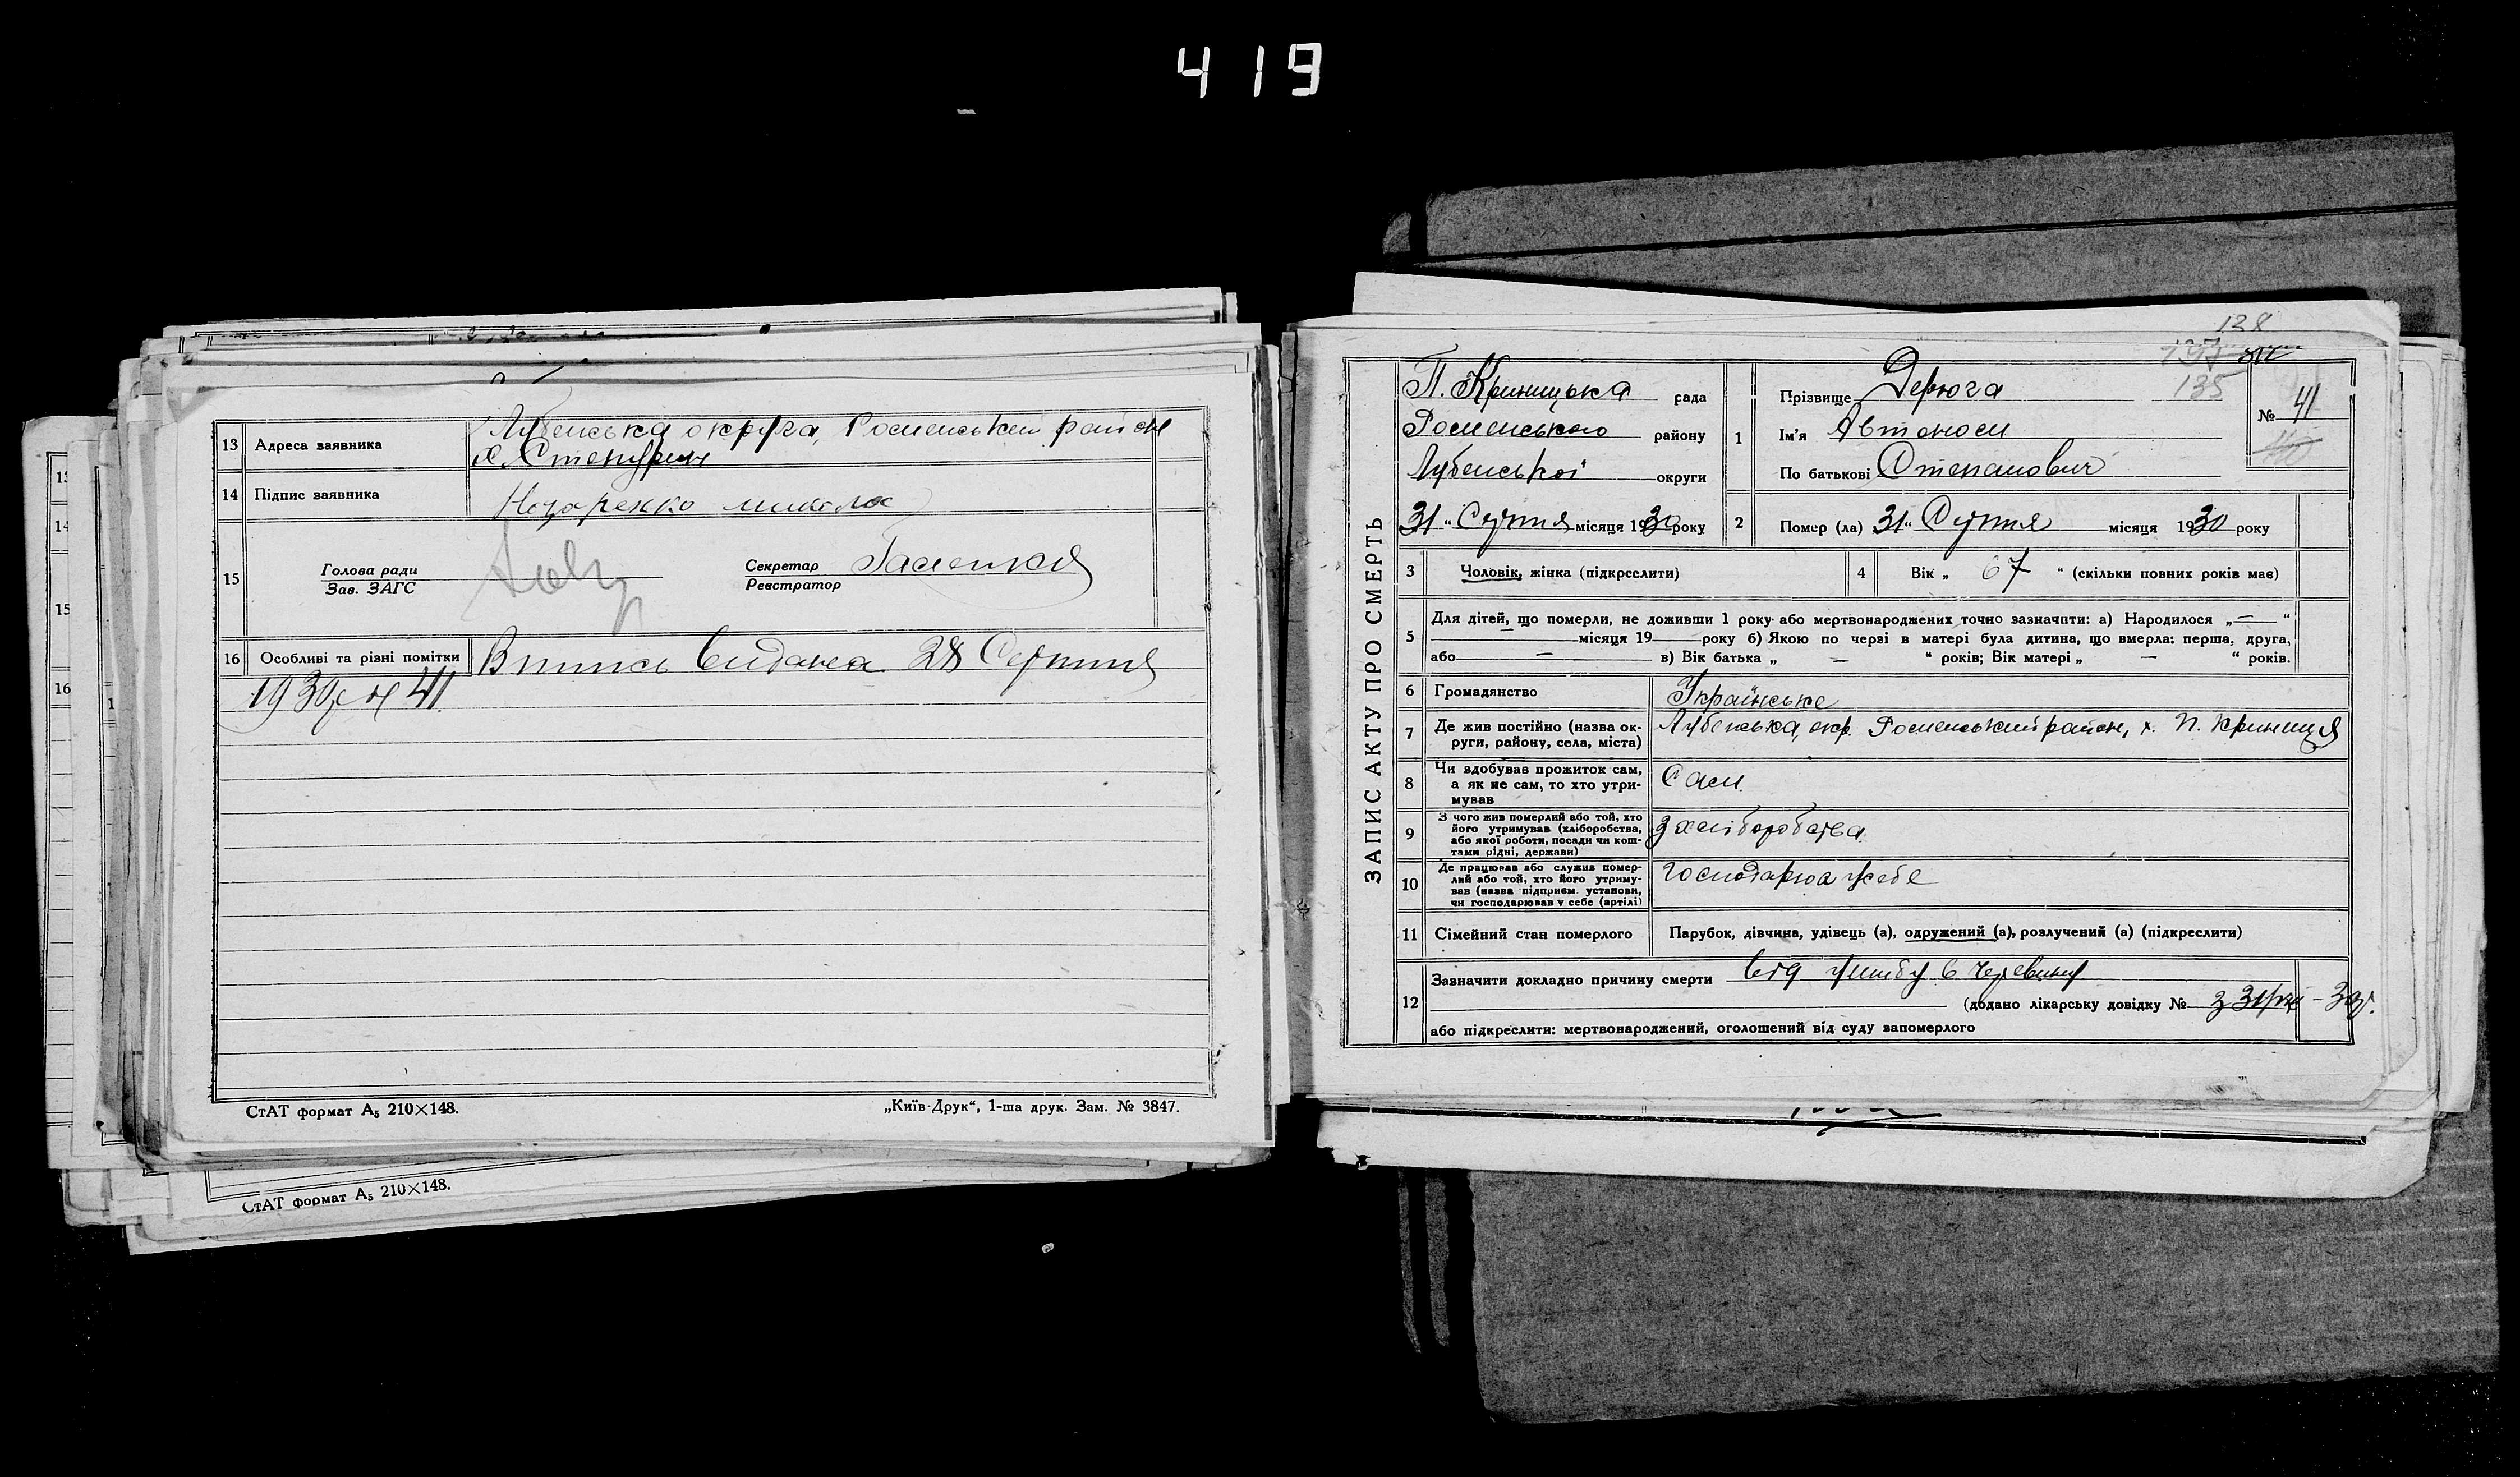 419
13 Адреса заявника Лубенська округа, Роменський район
х. Степурин
14 Підпис заявника Назаренко Микола
15 Голова ради
Зав. ЗАГС
Секретар
Реєстратор
16 Особливі та різні помітки Впись видана 28 Серпня
1930 р № 41
СтАТ формат А₅ 210×148.
„Київ-Друк“, 1-ша друк. Зам. № 3847.
СтАТ формат А₅ 210×148.
13
14
15
16
138
137
135
ЗАПИС АКТУ ПРО СМЕРТЬ
П. Криницька рада
Роменського району
Лубенської округи
„31“ Серпня місяця 1930 року
1 Прізвище Дерюга
Ім'я Автоном
По батькові Степанович
№ 41
2 Помер (ла) „31“ Серпня місяця 1930 року
3 Чоловік, жінка (підкреслити)
4 Вік „ 67 “ (скільки повних років має)
5 Для дітей, що померли, не доживши 1 року або мертвонароджених точно зазначити: а) Народилося „—“
— місяця 19 року б) Якою по черзі в матері була дитина, що вмерла: перша, друга,
або — в) Вік батька „ — “ років; Вік матері „ — “ років.
6 Громадянство Українське
7 Де жив постійно (назва округи, району, села, міста) Лубенська, окр. Роменський район, х. П. Криниця
8 Чи здобував прожиток сам,
а як не сам, то хто утримував Сам
9 З чого жив померлий або той, хто
його утримував (хліборобства,
або якої роботи, посади чи коштами рідні, держави) з хліборобства
10 Де працював або служив померлий або той, хто його утримував (назва підприєм. установи,
чи господарював у себе (артілі) господарюа у себе
11 Сімейний стан померлого Парубок, дівчина, удівець (а), одружений (а), розлучений (а) (підкреслити)
12 Зазначити докладно причину смерти від ушибу в черевину
(додано лікарську довідку №
або підкреслити: мертвонароджений, оголошений від суду запомерлого